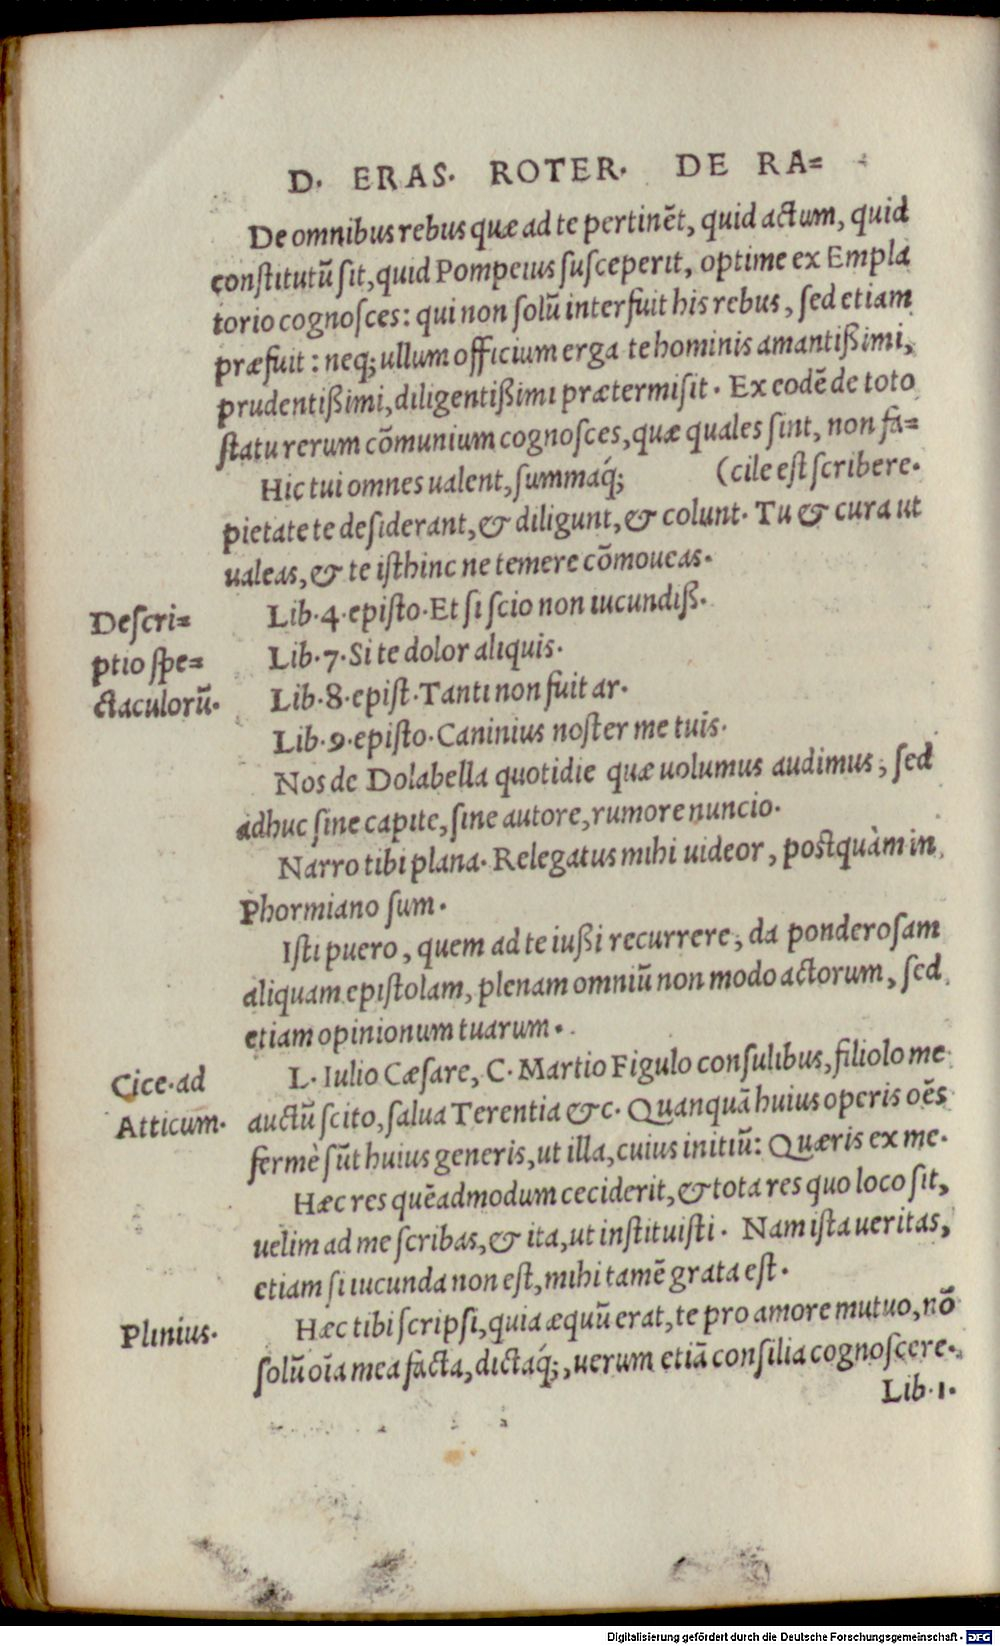 D. ERAS. ROTER. DE RA=
De omnibus rebus quæ ad te pertinẽt, quid actum, quid
constitutũ sit, quid Pompeius susceperit, optime ex Empla
torio cognosces: qui non solũ interfuit his rebus, sed etiam
præfuit: neq; ullum officium erga te hominis amantißimi,
prudentißimi, diligentißimi prætermisit. Ex eodẽ de toto
statu rerum cõmunium cognosces, quæ quales sint, non fa=
Hic tui omnes ualent, summaq́; (cile est scribere.
pietate te desiderant, & diligunt, & colunt. Tu & cura ut
ualeas, & te isthinc ne temere cõmoueas.
Lib. 4. episto. Et si scio non iucundiß.
Lib. 7. Si te dolor aliquis.
Lib. 8. epist. Tanti non fuit ar.
Lib. 9. episto. Caninius noster me tuis.
Descri=
ptio spe=
ctaculorũ.
Nos de Dolabella quotidie quæ uolumus audimus, sed
adhuc sine capite, sine autore, rumore nuncio.
Narro tibi plana. Relegatus mihi uideor, postquàm in
Phormiano sum.
Isti puero, quem ad te iußi recurrere, da ponderosam
aliquam epistolam, plenam omniũ non modo actorum, sed
etiam opinionum tuarum.
Cice. ad
Atticum.
L. Iulio Cæsare, C. Martio Figulo consulibus, filiolo me
auctũ scito, salua Terentia &c. Quanquã huius operis oẽs
fermè sũt huius generis, ut illa, cuius initiũ: Quæris ex me.
Hæc res quẽadmodum ceciderit, & tota res quo loco sit,
uelim ad me scribas, & ita, ut instituisti. Nam ista ueritas,
etiam si iucunda non est, mihi tamẽ grata est.
Plinius.
Hæc tibi scripsi, quia æquũ erat, te pro amore mutuo, nõ
solũ oĩa mea facta, dictaq́;, uerum etiã consilia cognoscere.
Lib. 1.
Digitalisierung gefördert durch die Deutsche Forschungsgemeinschaft - DFG